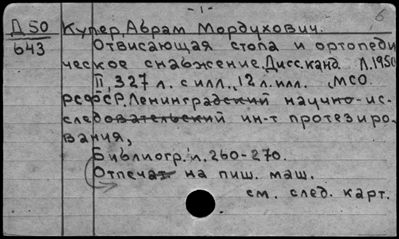 - 1 -
Д 50 Купер, Абрам Мордухович.
643 Отвисающая стопа и ортопеди-
ческое снабжение. Дисс. канд. Л. 1950
II, 327 л. с илл., 12 л. илл. МСО.
РСФСР, Ленинградский научно-ис-
следовательский ин-т протезиро-
вания,
Библиогр. л. 260-270.
Отпечат на пиш. маш.
см. след. карт.